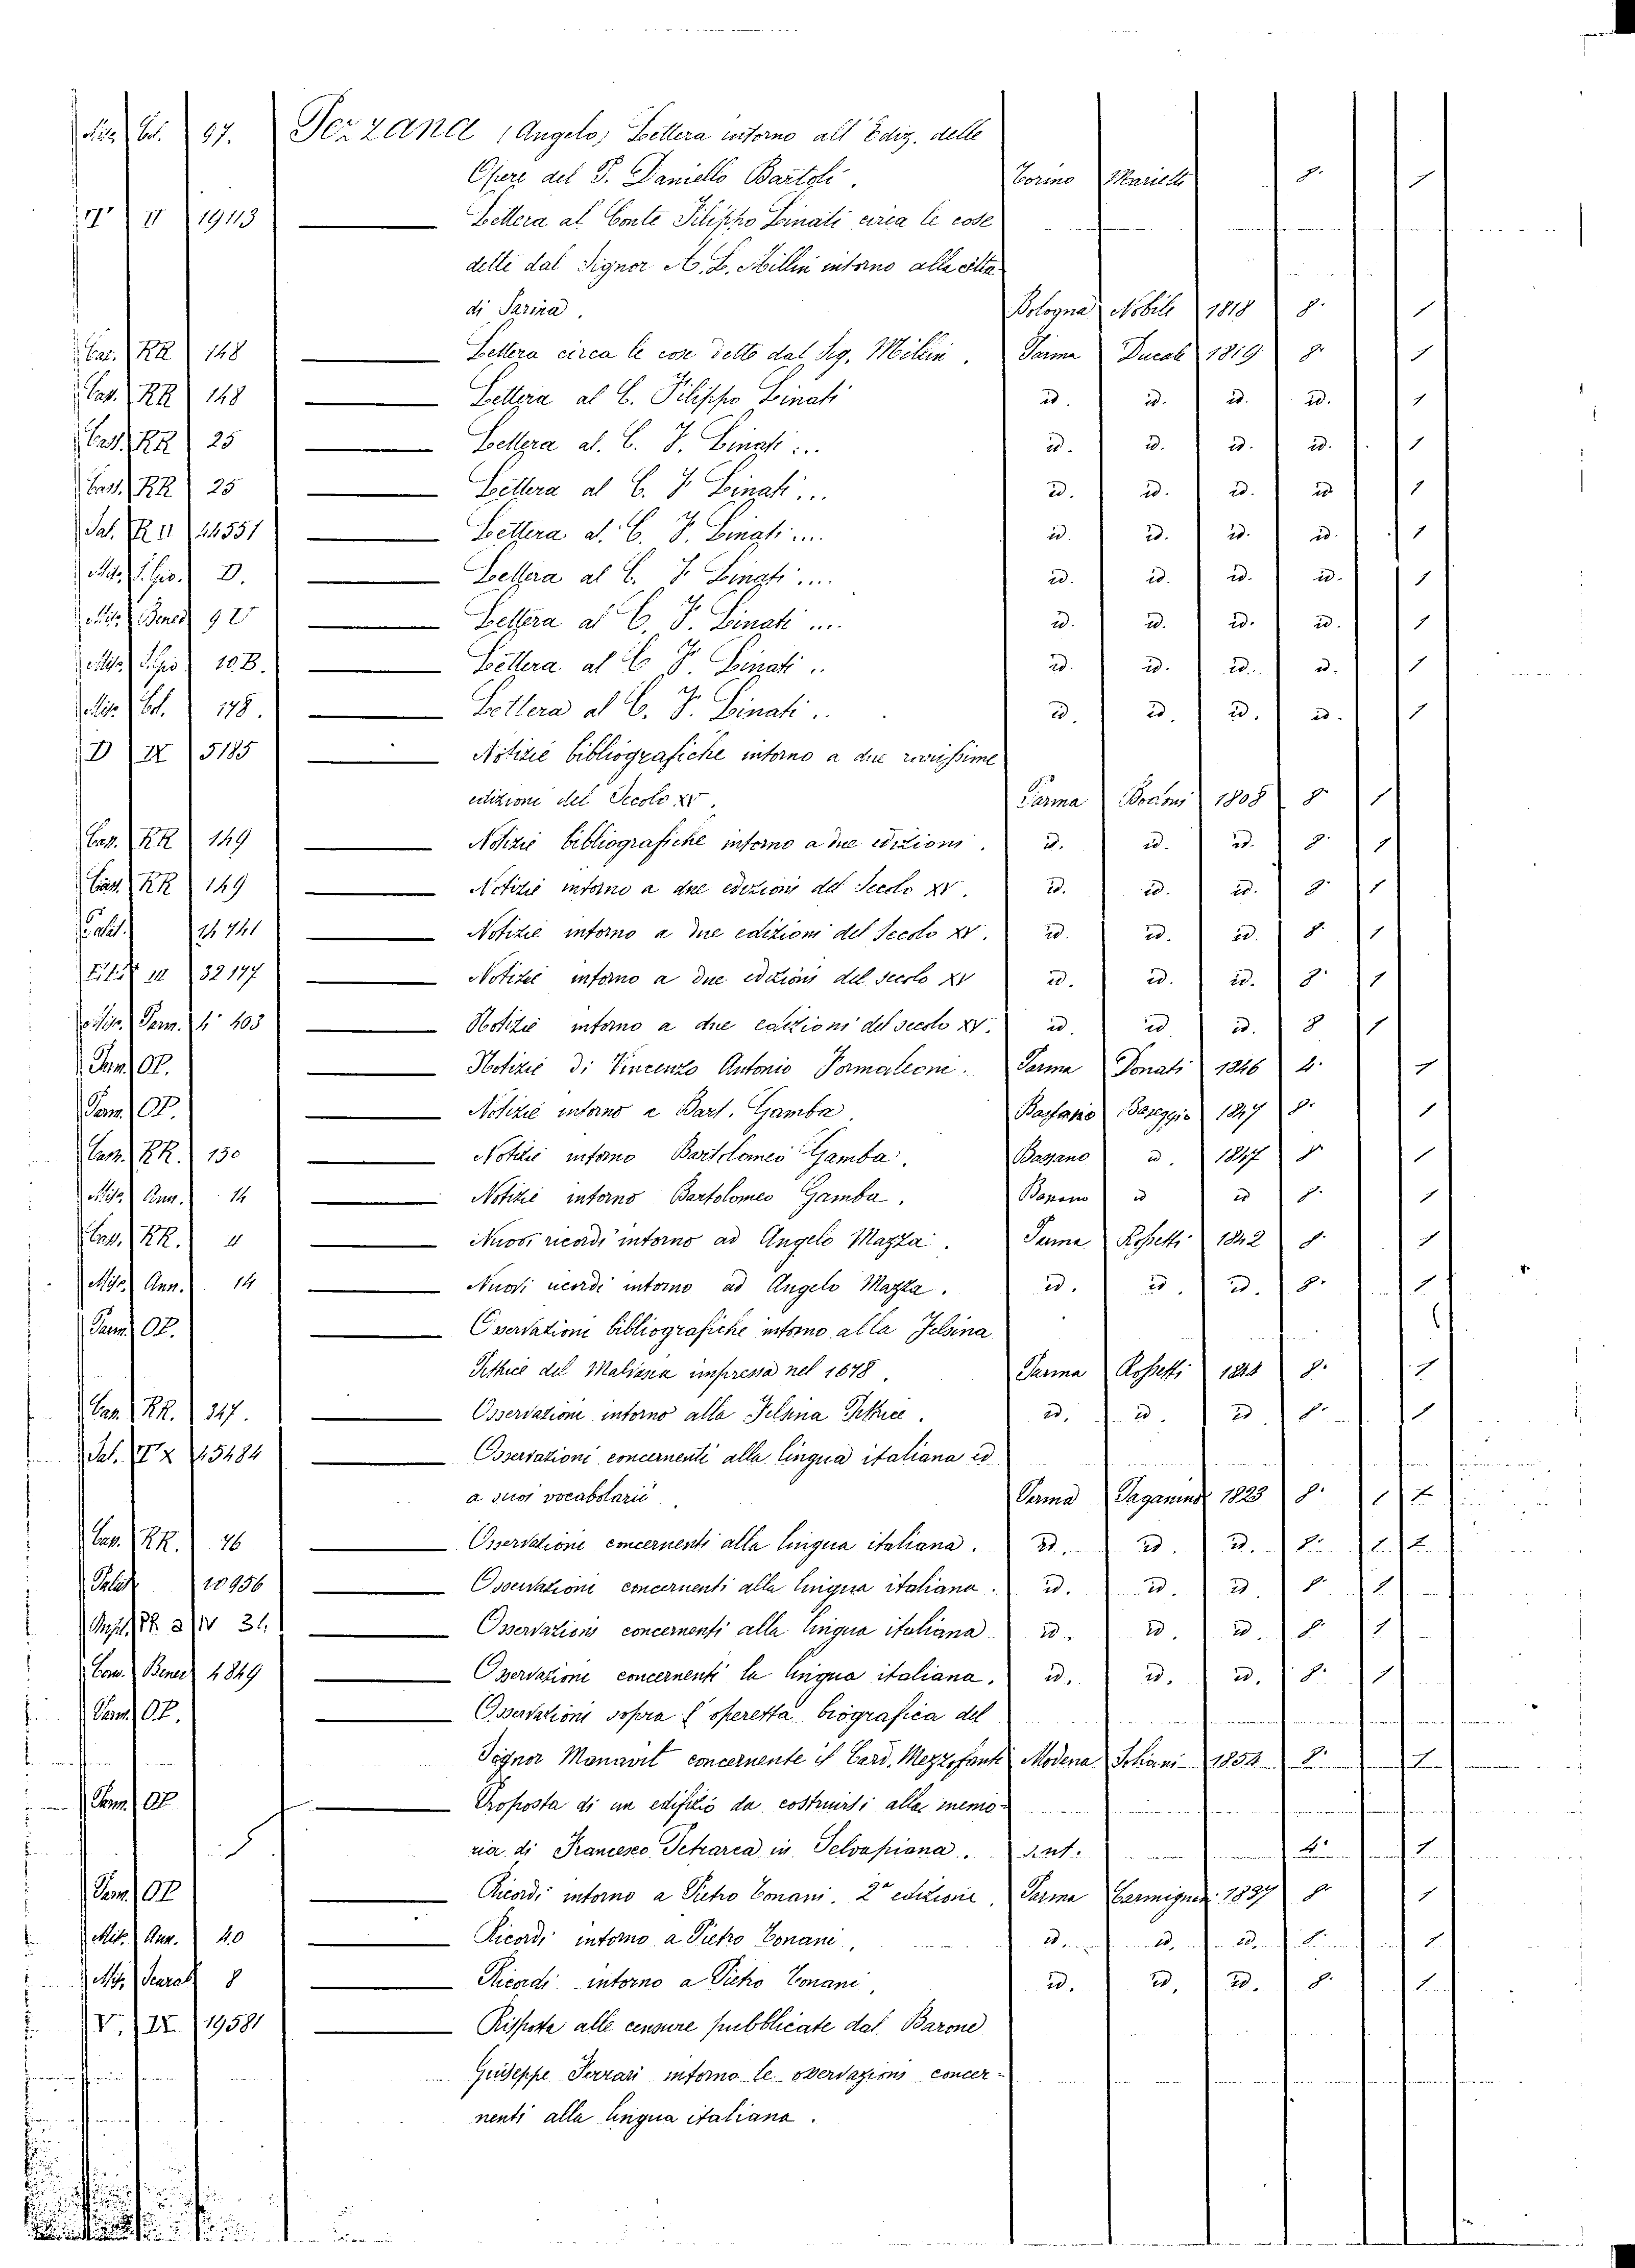 Mis. Col. 97. Pezzana (Angelo) Lettera intorno all' Ediz. delle
Opere del P. Daniello Bartoli. Torino Marietti 8. 1
II 19113 Lettera al Conte Filippo Linati circa le cose
dette dal Signor A. L. Millin intorno alla città
di Parma. Bologna Nobili 1818 8. 1
Cas. RR 148 Lettera circa le cose dette dal Sig. Millin. Parma Ducale 1819 8. 1
Cas. RR 148 Lettera al C. Filippo Linati id. id. id. id. 1
Cas. RR 25 Lettera al C. F. Linati ... id. id. id. id. 1
Cas. RR 25 Lettera al C. F. Linati ... id. id. id. id 1
Pal. 14551 Lettera al C. F. Linati .... id. id. id. id. 1
Mis. S. Gio. D. Lettera al C. F. Linati .... id. id. id. id. 1
Mis. Bened Lettera al C. F. Linati ... id. id. id. id. 1
Mis. S. Gio 10 B. Lettera al C. F. Linati .. id. id. id. id. 1
Mis. Col. 178. Lettera al C. F. Linati .. id. id. id. id. 1
D IX 5185 Notizie bibliografiche intorno a due rarissime
edizioni del Secolo XV. Parma Bodoni 1808 8 1
Cas. RR 149 Notizie bibliografiche intorno a due edizioni. id. id. id. 8. 1
Cas. RR 149 Notizie intorno a due edizioni del Secolo XV. id. id. id. 8. 1
Palat. 14741 Notizie intorno a due edizioni del Secolo XV. id. id. id. 8. 1
32177 Notizie intorno a due edizioni del secolo XV id. id. id. 8. 1
Mis. Parm. 4° 403 Notizie intorno a due edizioni del secolo XV. id. id id. 8 1
Parm. OP. Notizie di Vincenzo Antonio Formaleoni. Parma Donati 1826 4. 1
Parm. OP. Notizie intorno a Bart. Gamba. Bassano Baseggio 1847 8. 1
Cas. RR. 150 Notizie intorno Bartolomeo Gamba. Bassano id. 1847 8 1
Mis. Ann. 14 Notizie intorno Bartolomeo Gamba. Bassano id id 8. 1
Cas. RR. 4 Nuovi ricordi intorno ad Angelo Mazza. Parma Rossetti 1842 8. 1
Mis. Ann. 14 Nuovi ricordi intorno ad Angelo Mazza. id. id. id. 8. 1
Parm. OP. Osservazioni bibliografiche intorno alla Felsina
Pittrice del Malvasia impressa nel 1678. Parma Rossetti 1844 8. 1
Cas. RR. 347. Osservazioni intorno alla Felsina Pittrice. id. id. id 8. 1
Pal. 15484 Osservazioni concernenti alla lingua italiana ed
a suoi vocabolarii Parma Paganino 1823 8. 1 1
Cas. RR. 76 Osservazioni concernenti alla lingua italiana. id. id. id. 8. 1 1
Palat 10956 Osservazioni concernenti alla lingua italiana. id. id. id. 8. 1
Osservazioni concernenti alla lingua italiana. id. id. id. 8. 1
Com. Bened 4849 Osservazioni concernenti la lingua italiana. id. id. id. 8. 1
Parm. OP. Osservazioni sopra l'operetta biografica del
Signor Manavit concernente il Card. Mezzofanti Modena Soliani 1854 8. 1
Parm. OP Proposta di un edifizio da costruirsi alla memo-
ria di Francesco Petrarca in Selvapiana. s.n.t. 4° 1
Parm. OP Ricordi intorno a Pietro Conani. 2ª edizione. Parma Carmignani 1837 8. 1
Mis. Ann. 40 Ricordi intorno a Pietro Conani. id. id. id. 8. 1
Mis. 8 Ricordi intorno a Pietro Conani. id. id. id. 8. 1
V. IX 19581 Risposta alle censure pubblicate dal Barone
Giuseppe Ferrari intorno le osservazioni concer-
nenti alla lingua italiana.